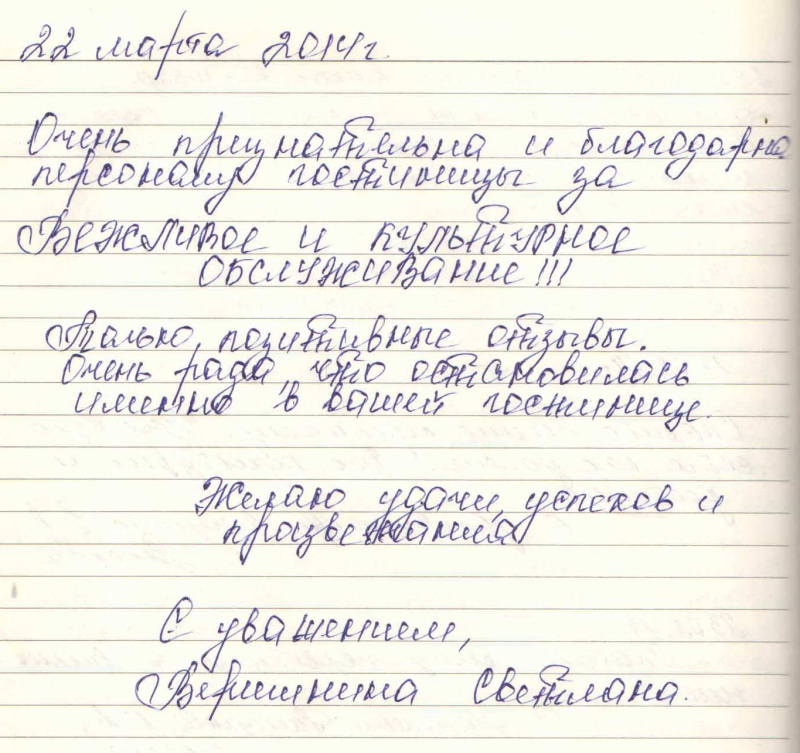 22 марта 2014г.
Очень признательна и благодарна
персоналу гостиницы за
ВЕЖЛИВОЕ И КУЛЬТУРНОЕ
ОБСЛУЖИВАНИЕ!!!
Только позитивные отзывы.
Очень рада, что остановилась
именно в вашей гостинице.
Желаю удачи, успехов и
процветания
С уважением,
Вершинина Светлана.